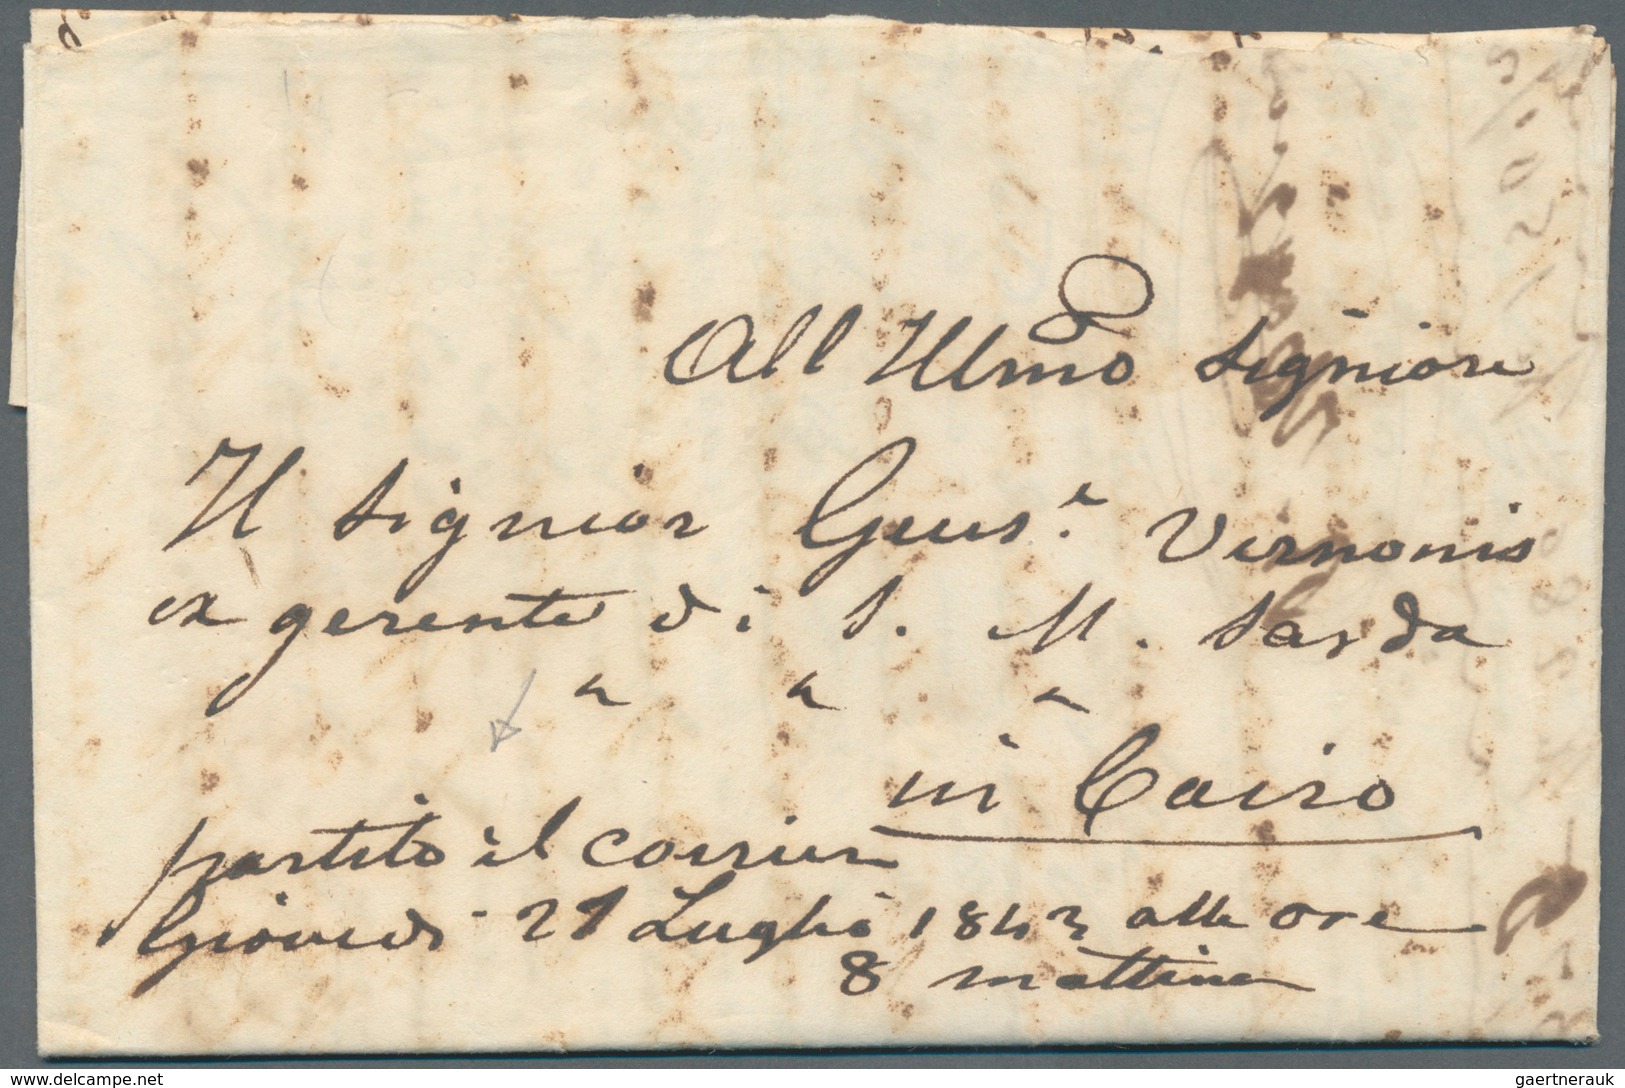 All Illmo Signiore
Il Signior Gius.e Vernonis
ex gerente di S. M. Sarda
in Cairo
partito il corrier
Giovedi 27 Luglio 1843 alle ore
8 mattina
delcampe.net
gaertnerauk